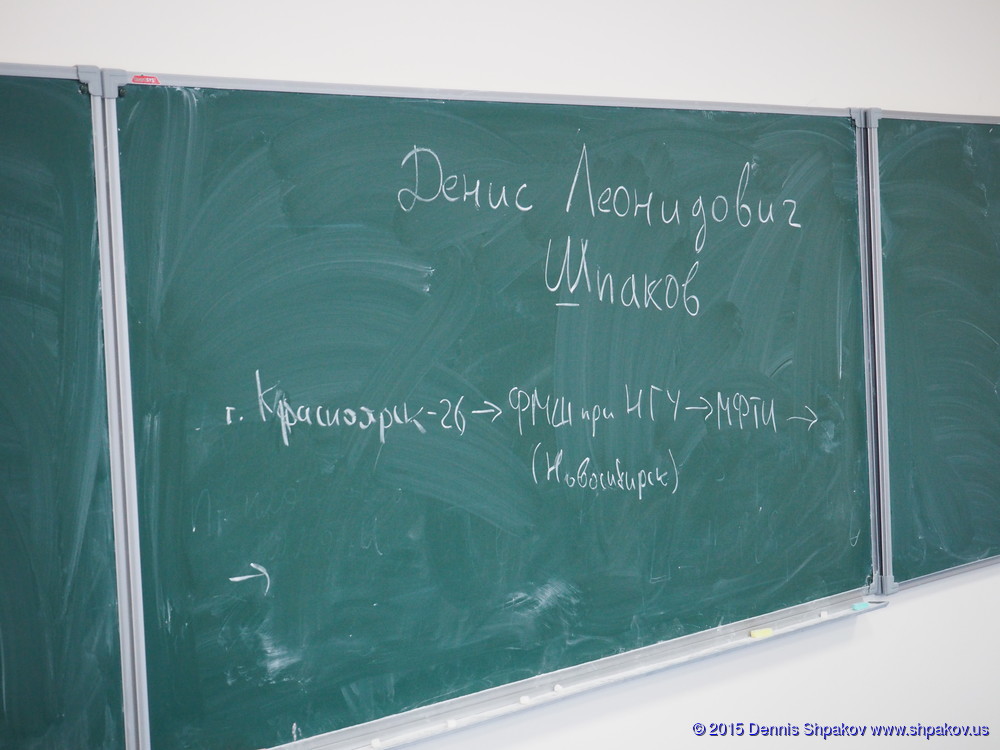 Денис Леонидович
Шпаков
г. Красноярск-26 → ФМШ при НГУ → МФТИ →
(Новосибирск)
→
© 2015 Dennis Shpakov www.shpakov.us